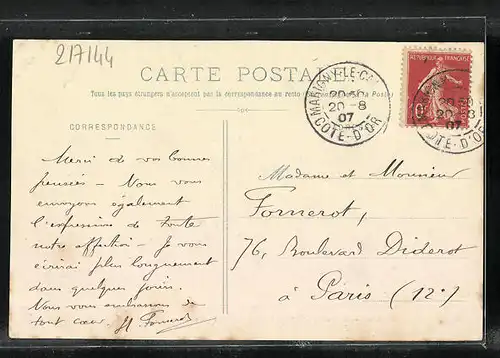 217144
CARTE POSTALE
Tous les pays étrangers n'acceptent pas la correspondance au recto
CORRESPONDANCE
MARIGNY-LE-CA
20-8
07
CÔTE-D'OR
RÉPUBLIQUE FRANÇAISE
20-8
07
CÔTE-D'OR
Merci de vos bonnes
pensées - Nous vous
envoyons également
l'expression de toute
notre affection - Je vous
écrirai plus longuement
dans quelques jours.
Nous vous embrassons de
tout cœur. H. Fornerot
Madame et Monsieur
Fornerot,
76, Boulevard Diderot
à Paris (12e)